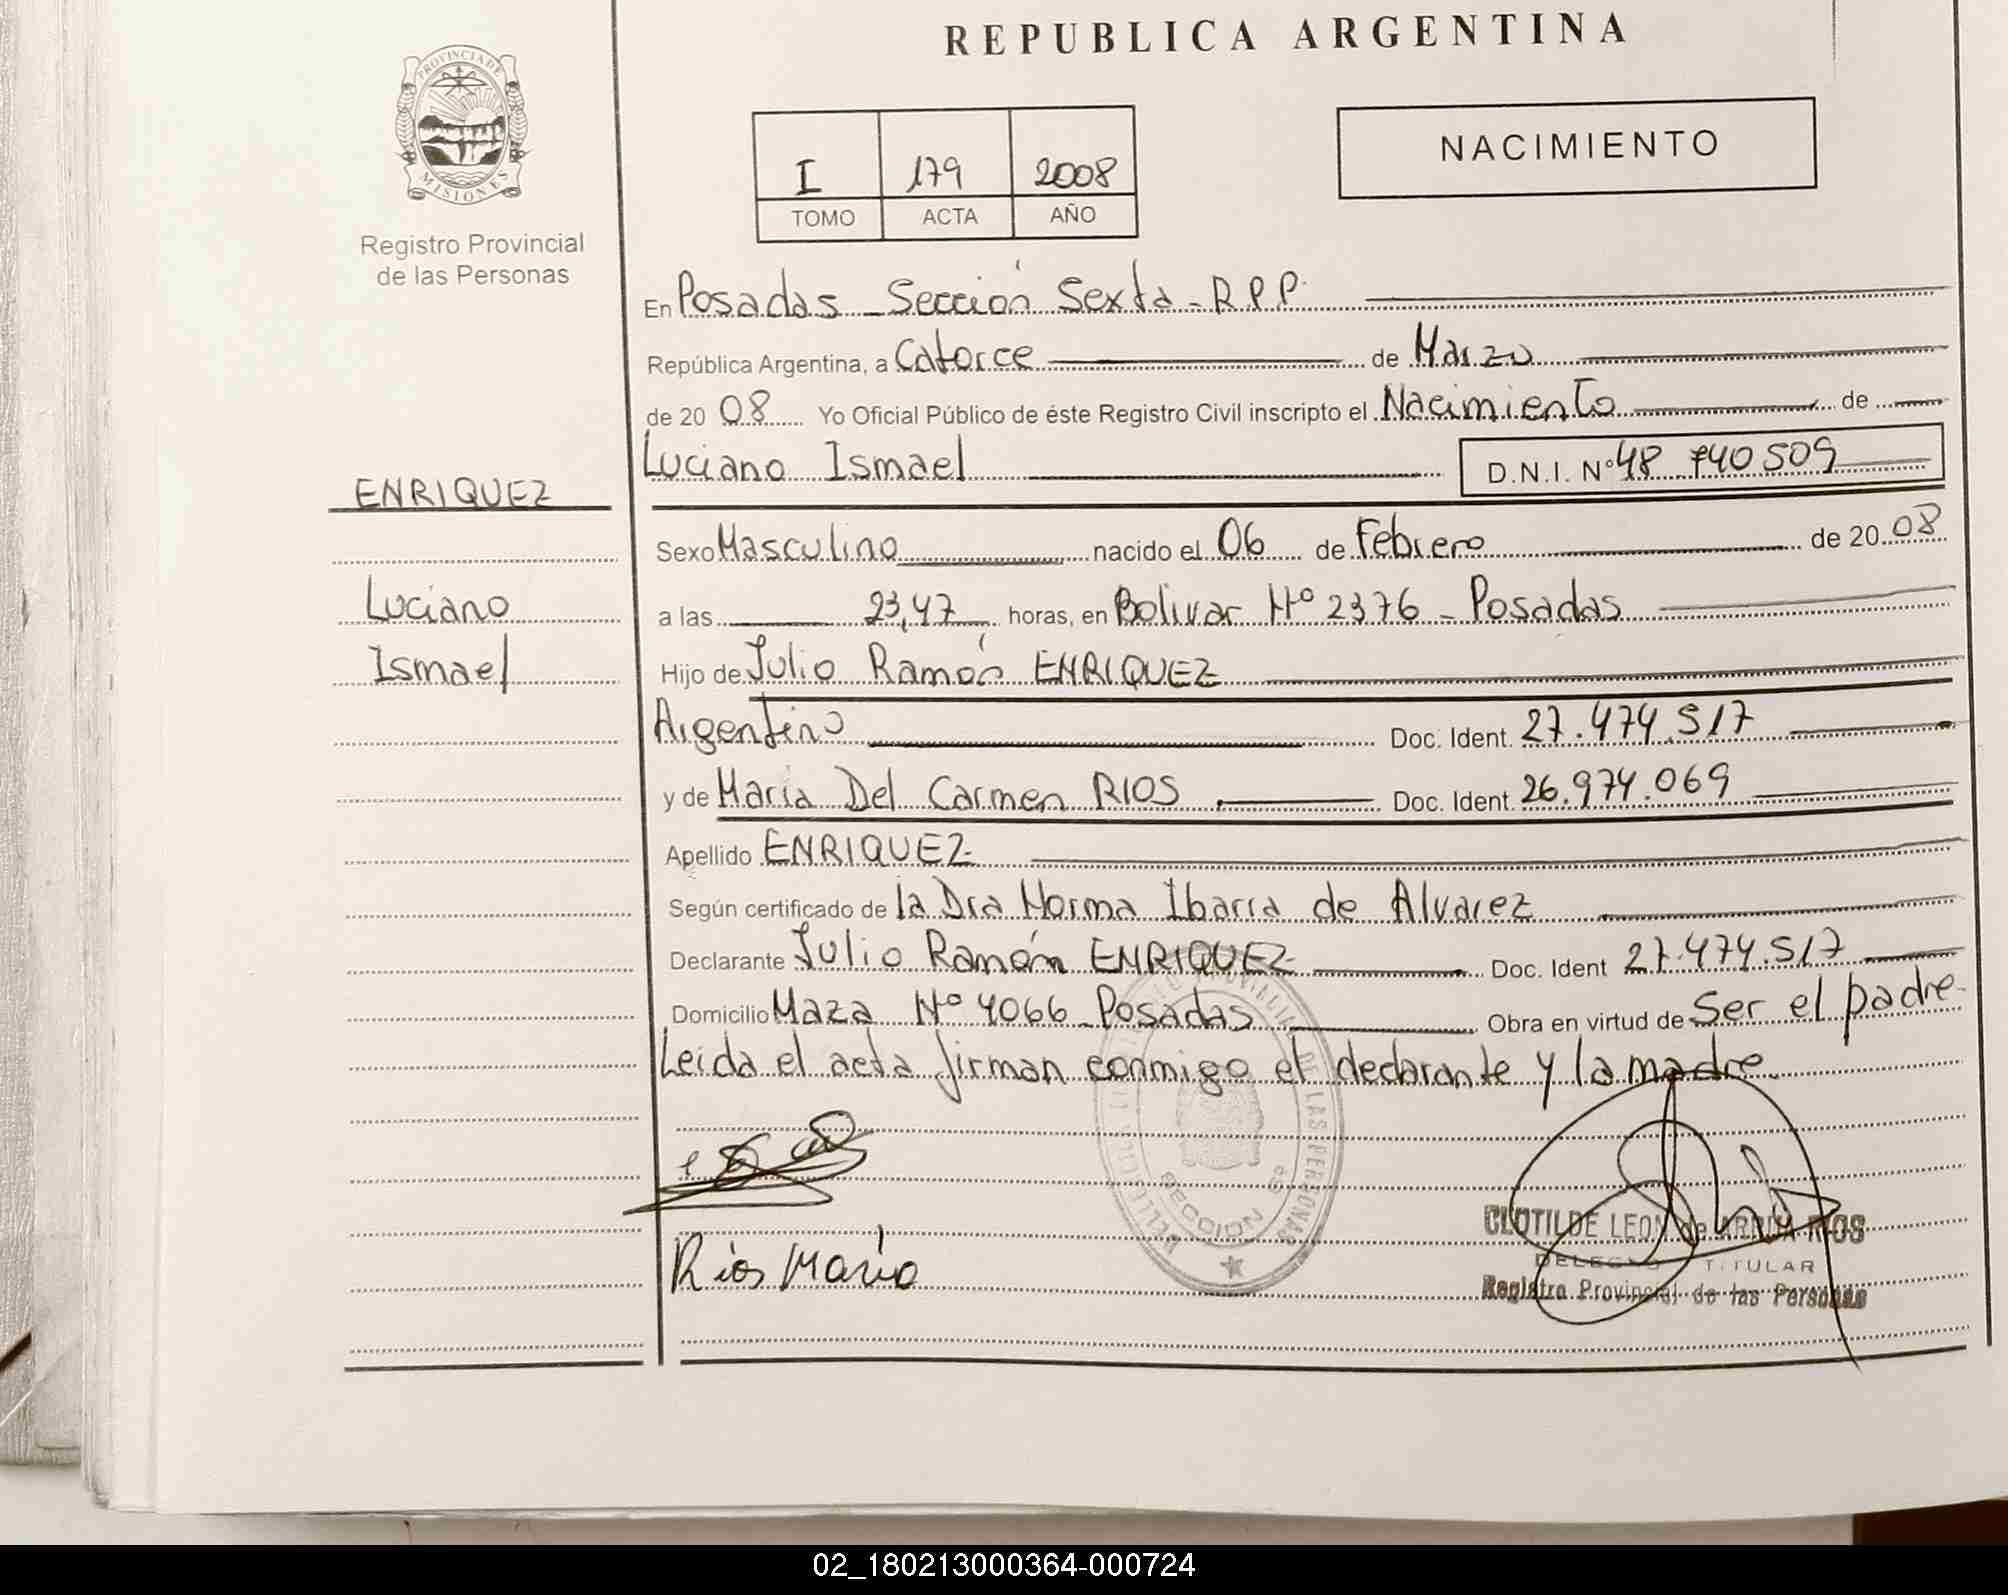 REPUBLICA ARGENTINA
PROVINCIA DE
MISIONES
Registro Provincial
de las Personas
I 179 2008
TOMO ACTA AÑO
NACIMIENTO
En Posadas - Sección Sexta - R.P.P.
República Argentina, a Catorce de Marzo
de 20 08 Yo Oficial Público de éste Registro Civil inscripto el Nacimiento de
Luciano Ismael D.N.I. Nº 48 740 509
ENRIQUEZ
Sexo Masculino nacido el 06 de Febrero de 20 08
Luciano
a las 23,47 horas, en Bolivar Nº 2376 - Posadas
Ismael
Hijo de Julio Ramón ENRIQUEZ
Argentino Doc. Ident. 27.474.517
y de María Del Carmen RIOS Doc. Ident. 26.974.069
Apellido ENRIQUEZ
Según certificado de la Dra Norma Ibarra de Alvarez
Declarante Julio Ramón ENRIQUEZ Doc. Ident 27.474.517
Domicilio Maza Nº 4066 - Posadas Obra en virtud de Ser el padre-
Leida el acta firman conmigo el declarante y la madre.
PROVINCIAL DE LAS PERSONAS
SECCION 6ª
CLOTILDE LEON de ARRUA RIOS
TITULAR
Registro Provincial de las Personas
Rios Maria
02_180213000364-000724